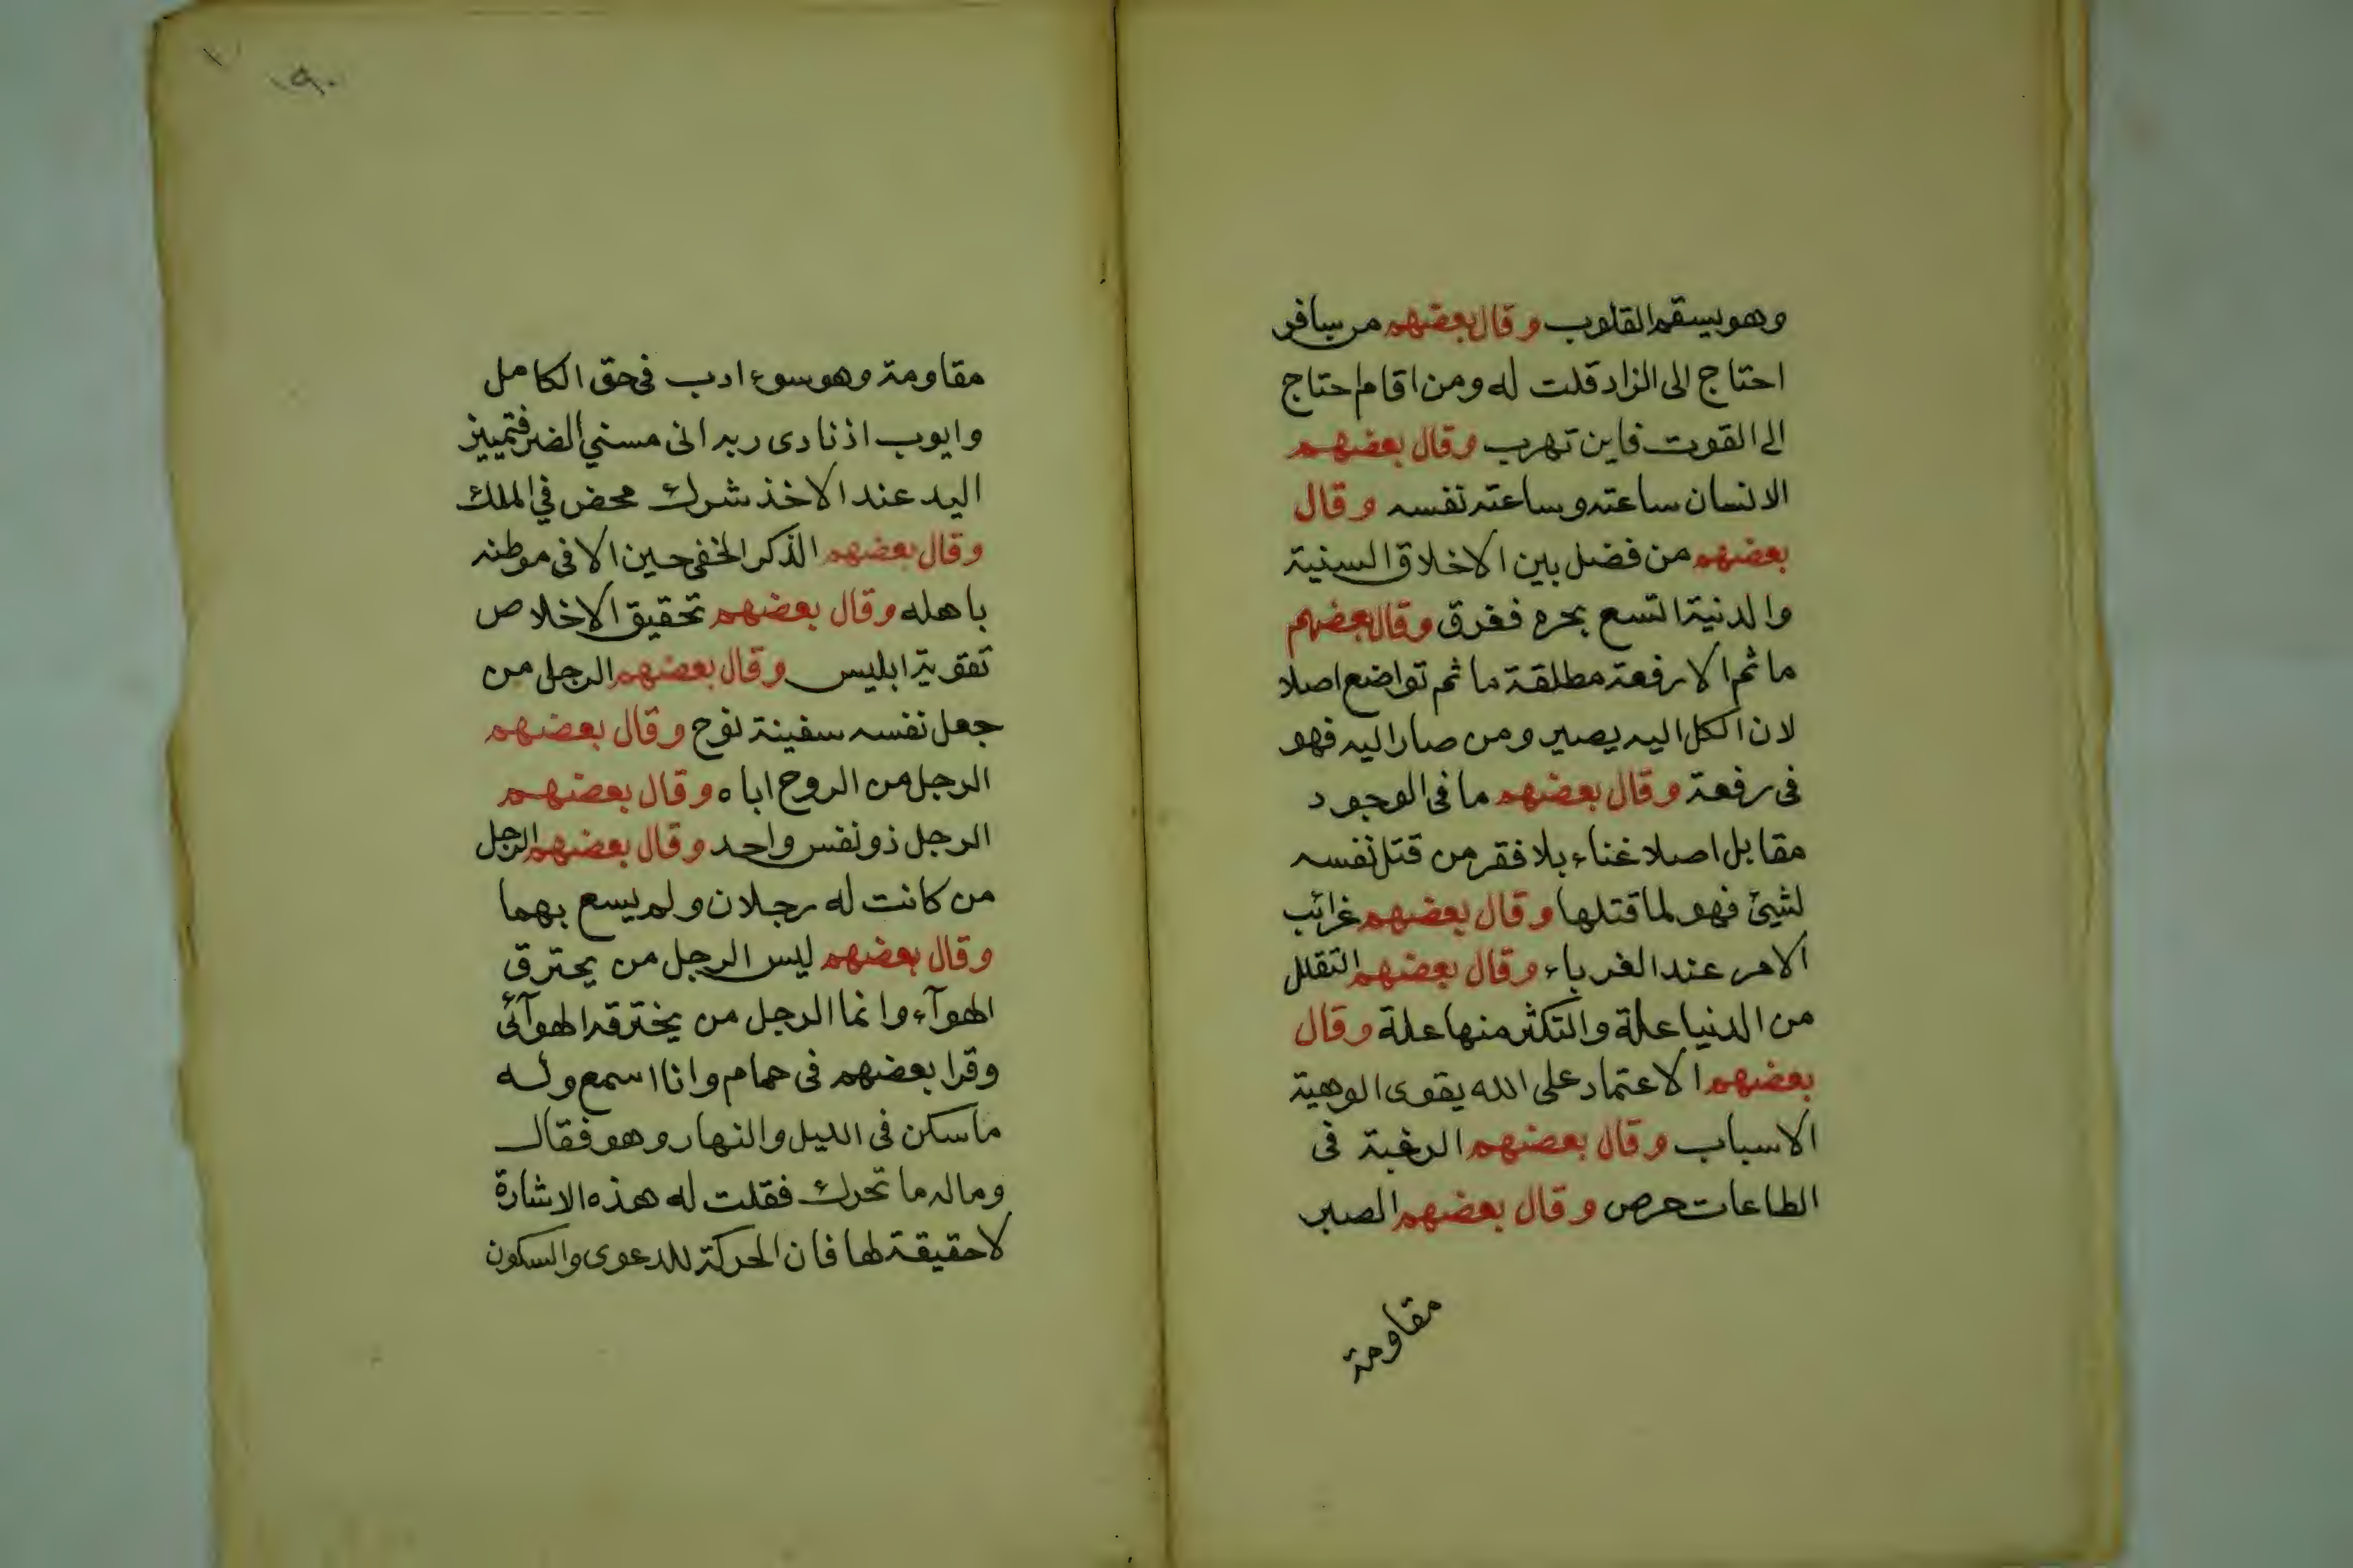 وهو يسقم القلوب وقال بعضهم من سافر
احتاج الى الزاد قلت له ومن اقام احتاج
الى القوت فاين تهرب وقال بعضهم
الانسان ساعته وساعته نفسه وقال
بعضهم من فضل بين الاخلاق السنية
والدنية اتسع بحره فغرق وقال بعضهم
ما ثم الا رفعة مطلقة ما ثم تواضع اصلا
لان الكل اليه يصير ومن صار اليه فهو
فى رفعة وقال بعضهم ما فى الوجود
مقابل اصلا غناء بلا فقر من قتل نفسه
لشيئ فهو لما قتلها وقال بعضهم غرائب
الامر عند الغرباء وقال بعضهم التقلل
من الدنيا علة والتكثر منها علة وقال
بعضهم الاعتماد على الله يقوى الوهية
الاسباب وقال بعضهم الرغبة فى
الطاعات حرص وقال بعضهم الصبر
مقاومة
١٩٠
مقاومة وهو سوء ادب فى حق الكامل
وايوب اذ نادى ربه انى مسني الضر فتمييز
اليد عند الاخذ شرك محض في الملك
وقال بعضهم الذكر الخفى حين الا فى موطنه
باهله وقال بعضهم تحقيق الاخلاص
تقوية ابليس وقال بعضهم الرجل من
جعل نفسه سفينة نوح وقال بعضهم
الرجل من الروح اباه وقال بعضهم
الرجل ذو نفس واحد وقال بعضهم الرجل
من كانت له رجلان ولم يسع بهما
وقال بعضهم ليس الرجل من يحترق
الهوآء وانما الرجل من يخترقه الهوآئ
وقرا بعضهم فى حمام وانا اسمع وله
ما سكن فى الليل والنهار وهو فقال
وماله ما تحرك فقلت له هذه الاشارة
لا حقيقة لها فان الحركة للدعوى والسكون